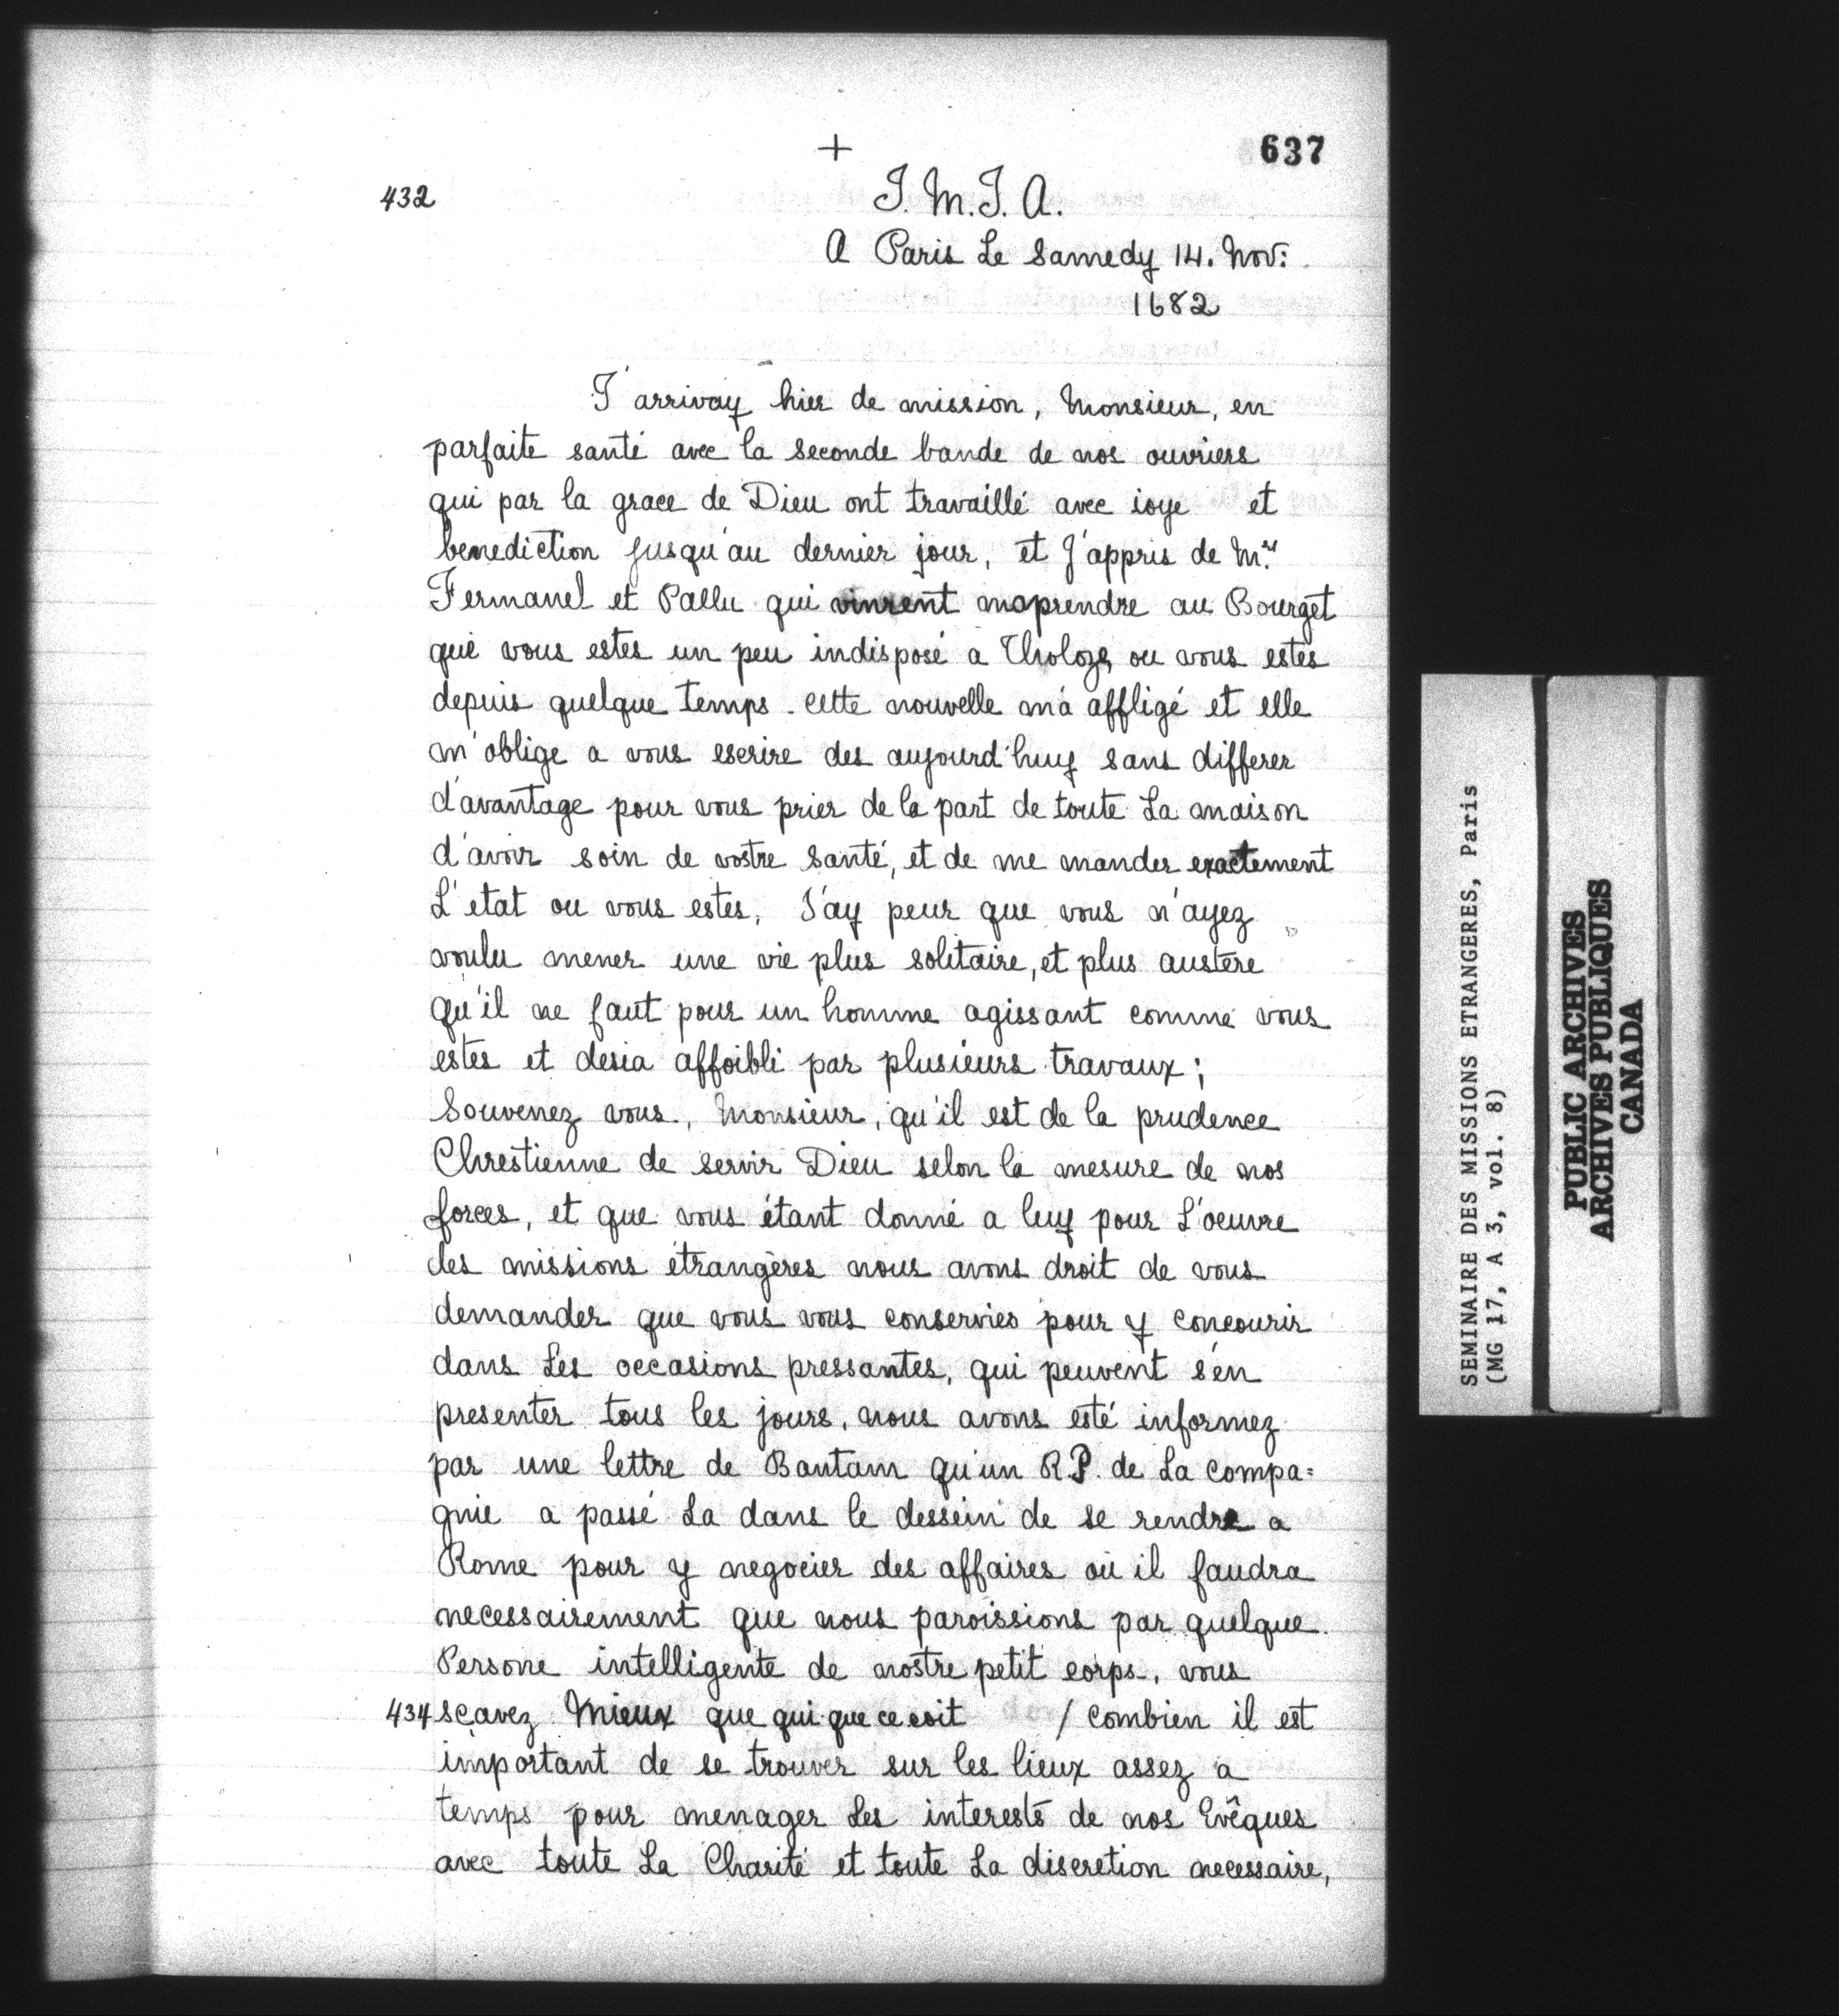 637
+
432 J. M. J. A.
A Paris Le Samedy 14. Nov:
1682
J'arrivay hier de mission, Monsieur, en
parfaite santé avec la seconde bande de nos ouvriers
qui par la grace de Dieu ont travaillé avec ioye et
benediction jusqu'au dernier jour, et J'appris de Mrs
Fermanel et Pallu qui vinrent maprendre au Bourget
que vous estes un peu indisposé a Tholoze ou vous estes
depuis quelque temps. cette nouvelle m'a affligé et elle
m'oblige a vous escrire des aujourd'huy sans differer
d'avantage pour vous prier de la part de toute La maison
d'avoir soin de vostre santé, et de me mander exactement
L'etat ou vous estes, J'ay peur que vous n'ayez
voulu mener une vie plus solitaire, et plus austère
qu'il ne faut pour un homme agissant comme vous
estes et desia affoibli par plusieurs travaux;
Souvenez vous, Monsieur, qu'il est de la prudence
Chrestienne de servir Dieu selon la mesure de nos
forces, et que vous étant donné a luy pour L'oeuvre
des missions étrangères nous avons droit de vous
demander que vous vous conservies pour y concourir
dans Les occasions pressantes, qui peuvent s'en
presenter tous les jours, nous avons esté informez
par une lettre de Bantam qu'un R.P. de La compa=
gnie a passé La dans le dessein de se rendre a
Rome pour y negocier des affaires où il faudra
necessairement que nous paroissions par quelque
Persone intelligente de nostre petit corps, vous
434 sçavez Mieux que qui que ce soit / combien il est
important de se trouver sur les lieux assez a
temps pour menager Les interests de nos Evêques
avec toute La Charité et toute La discretion necessaire,
SEMINAIRE DES MISSIONS ETRANGERES, Paris
(MG 17, A 3, vol. 8)
PUBLIC ARCHIVES
ARCHIVES PUBLIQUES
CANADA